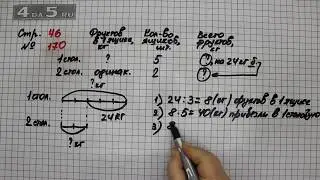 4DA5.RU
Стр. 46
№ 170
Фруктов в 1 ящике, кг
Кол-во ящиков, шт.
Всего фруктов, кг
1 стол. ? кг 5 ?, на 24 кг б.
2 стол. одинак. 2 ?
? кг
1 стол.
24 кг
2 стол.
? кг
1) 24:3=8(кг) фруктов в 1 ящике
2) 8·5=40(кг) привезли в 1 столовую
3) 8